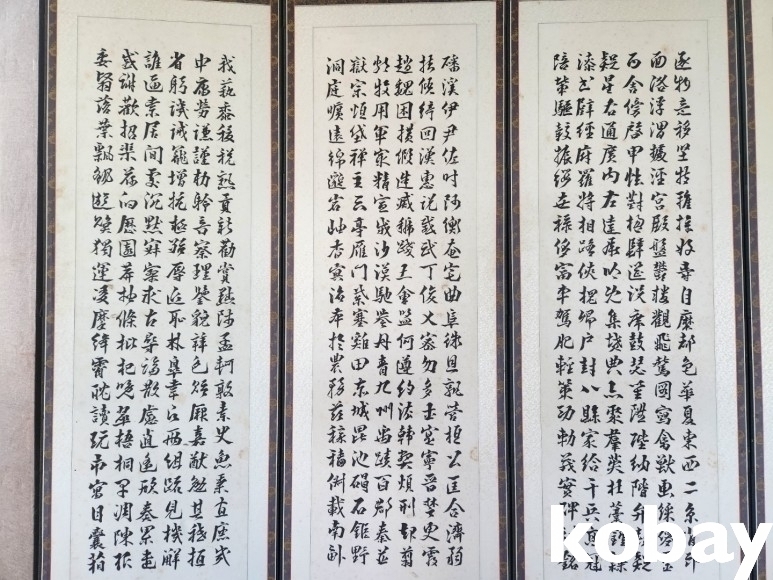 逐物意移堅持雅操好爵自縻都邑華夏東西二京背邙
面洛浮渭據涇宮殿盤鬱樓觀飛驚圖寫禽獸畫綵仙靈
丙舍傍啓甲帳對楹肆筵設席鼓瑟吹笙陞階納陛弁轉
疑星右通廣內左達承明既集墳典亦聚群英杜稾鍾隸
漆書壁經府羅將相路俠槐卿戶封八縣家給千兵高冠
陪輦驅轂振纓世祿侈富車駕肥輕策功勒茂實碑刻銘
磻溪伊尹佐時阿衡奄宅曲阜微旦孰營桓公匡合濟弱
扶傾綺回漢惠說感武丁俊乂密勿多士寔寧晉楚更霸
趙魏困橫假途滅虢踐土會盟何遵約法韓弊煩刑起翦
頗牧用軍最精宣威沙漠馳譽丹青九州禹跡百郡秦并
嶽宗恆岱禪主云亭雁門紫塞雞田赤城昆池碣石鉅野
洞庭曠遠綿邈巖岫杳冥治本於農務茲稼穡俶載南畝
我藝黍稷稅熟貢新勸賞黜陟孟軻敦素史魚秉直庶幾
中庸勞謙謹勅聆音察理鑑貌辨色貽厥嘉猷勉其祗植
省躬譏誡寵增抗極殆辱近恥林皋幸即兩組疏見機解
誰逼索居閒處沉默寂寥求古尋論散慮逍遙欣奏累遣
慼謝歡招渠荷的歷園莽抽條枇杷晚翠梧桐早凋陳根
委翳落葉飄颻遊鵾獨運凌摩絳霄耽讀翫市寓目囊箱
kobay